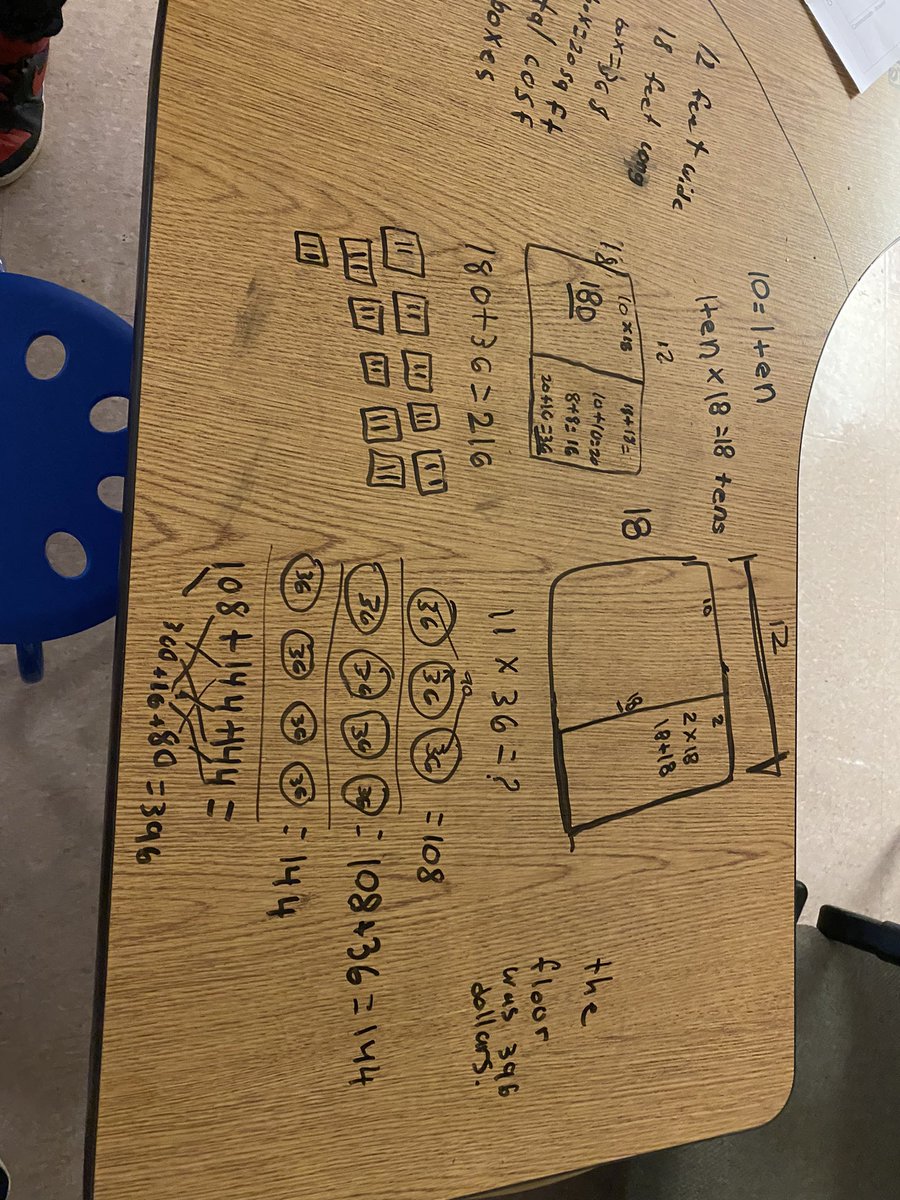 12 feet wide
18 feet long
box=20sq ft
cost
boxes
10=1ten
1ten x 18=18 tens
12
18
10x18
180
18+18=
10+10=20
8+8=16
20+16=36
180+36=216
12
18
10
2
18
2x18
18+18
11 x 36=?
36 36 36 =108
36 36 36 36 =108+36=144
36 36 36 36 =144
108+144+144=
300+16+80=396
the
floor
was 396
dollars.